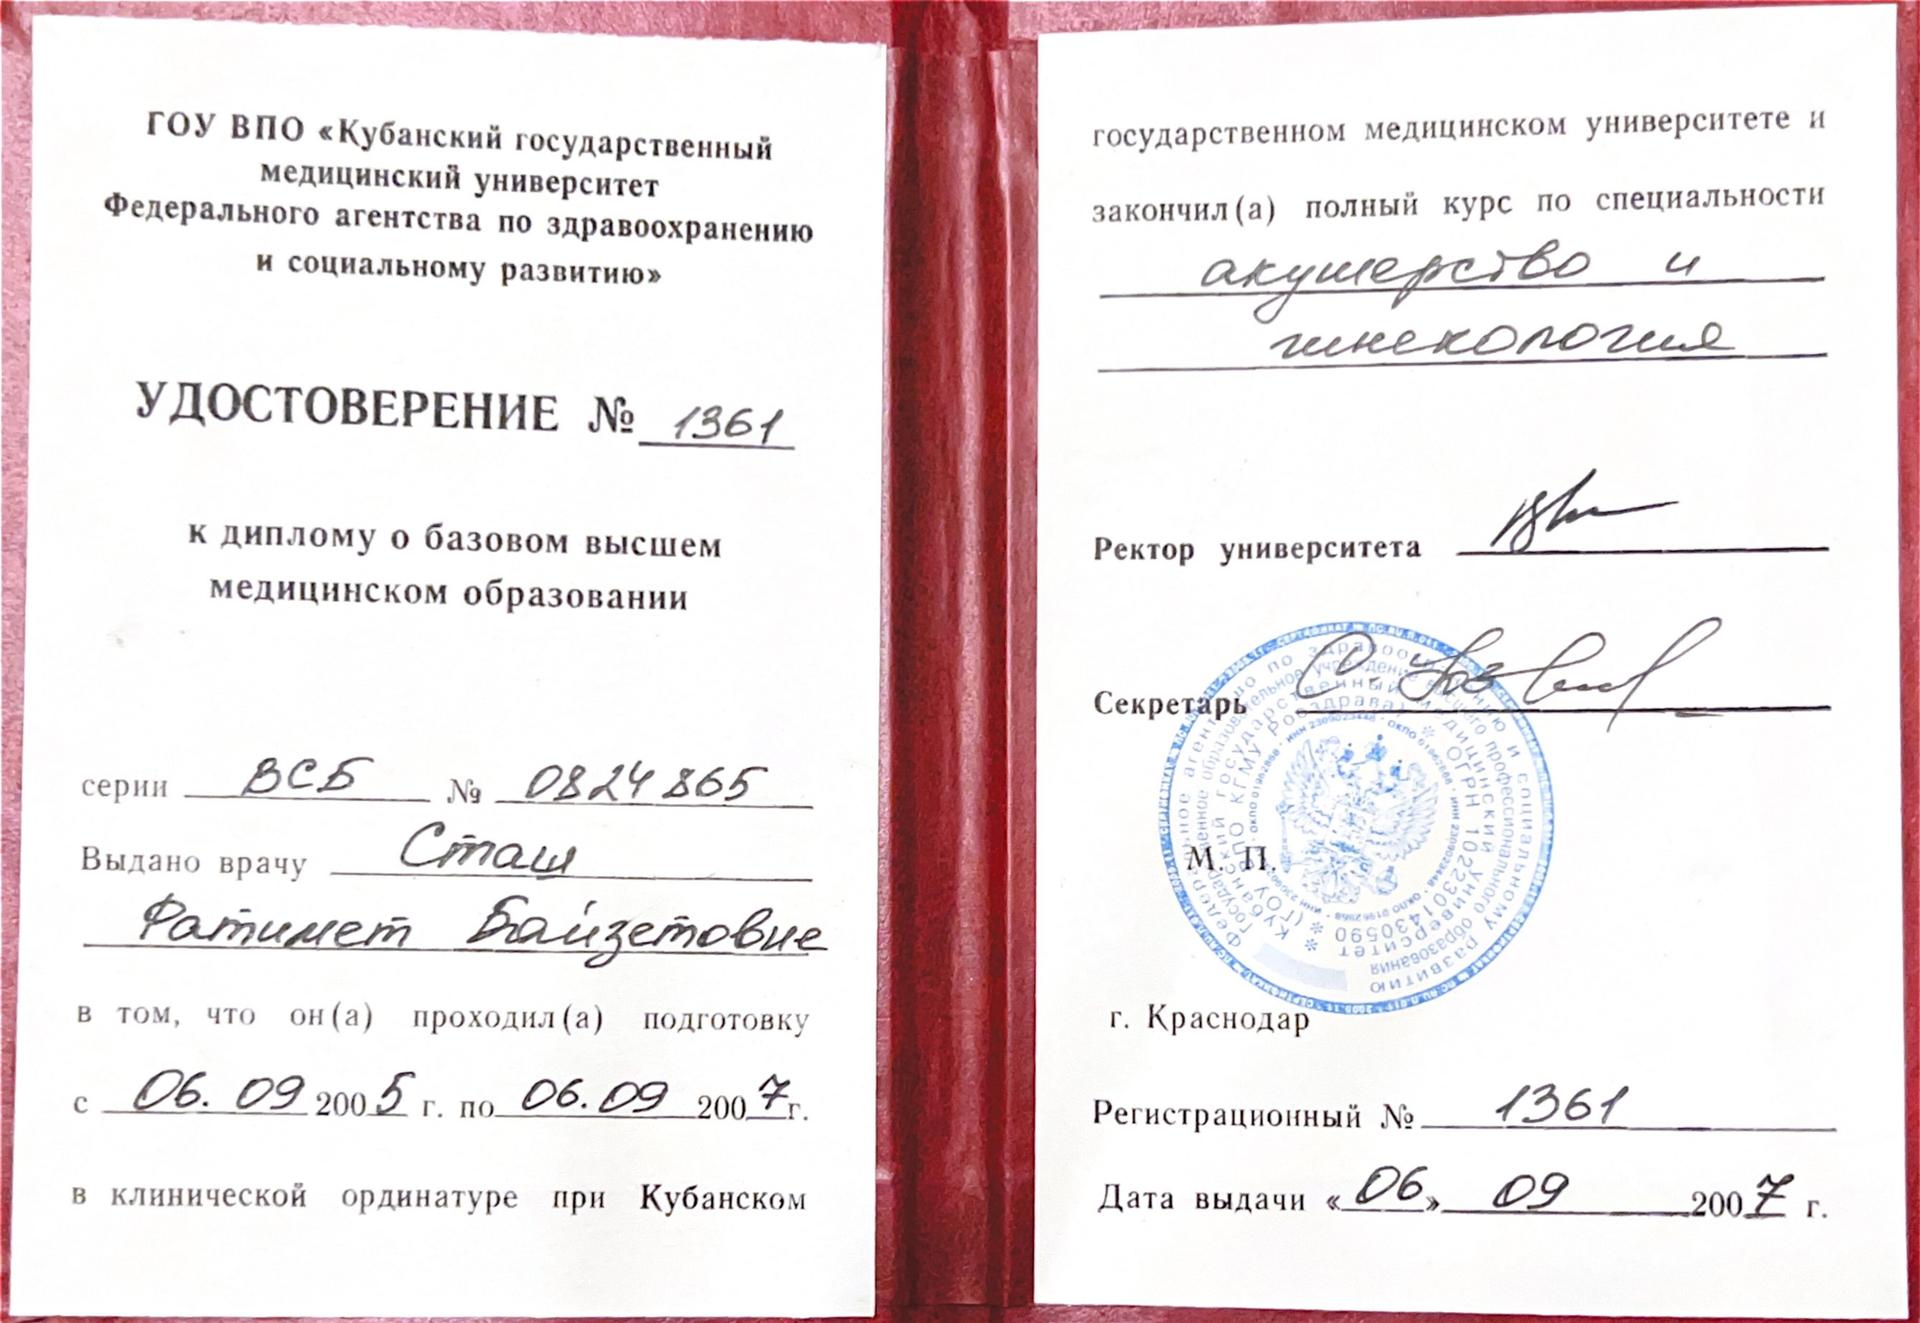 ГОУ ВПО «Кубанский государственный
медицинский университет
Федерального агентства по здравоохранению
и социальному развитию»
УДОСТОВЕРЕНИЕ № 1361
к диплому о базовом высшем
медицинском образовании
серии ВСБ № 0824865
Выдано врачу Сташ
Фатимет Байзетовне
в том, что он(а) проходил(а) подготовку
с 06.09 2005 г. по 06.09 2007 г.
в клинической ординатуре при Кубанском
государственном медицинском университете и
закончил(а) полный курс по специальности
акушерство и
гинекология
Ректор университета
Секретарь
М. П.
Федеральное агентство по здравоохранению и социальному развитию
Государственное образовательное учреждение высшего профессионального образования
Кубанский государственный медицинский университет
(ГОУ ВПО КГМУ Росздрава) * ОГРН 1022301430590 *
г. Краснодар
Регистрационный № 1361
Дата выдачи «06» 09 2007 г.